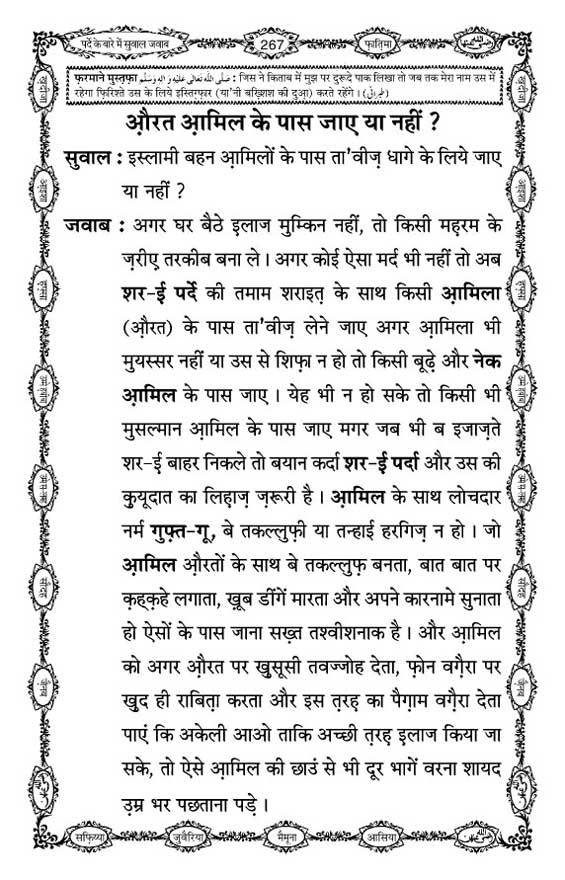 पर्दे के बारे में सुवाल जवाब
267
फ़ातिमा
फ़रमाने मुस्तफ़ा صَلَّى اللهُ تَعَالٰى عَلَيْهِ وَاٰلِهٖ وَسَلَّم : जिस ने किताब में मुझ पर दुरूदे पाक लिखा तो जब तक मेरा नाम उस में
रहेगा फ़िरिश्ते उस के लिये इस्तिग़्फ़ार (या'नी बख़्शिश की दुआ) करते रहेंगे । (طبرانی)
औ़रत आ़मिल के पास जाए या नहीं ?
सुवाल : इस्लामी बहन आ़मिलों के पास ता'वीज़ धागे के लिये जाए
या नहीं ?
जवाब : अगर घर बैठे इलाज मुम्किन नहीं, तो किसी मह़रम के
ज़रीए तरकीब बना ले । अगर कोई ऐसा मर्द भी नहीं तो अब
शर-ई पर्दे की तमाम शराइत़ के साथ किसी आ़मिला
(औ़रत) के पास ता'वीज़ लेने जाए अगर आ़मिला भी
मुयस्सर नहीं या उस से शिफ़ा न हो तो किसी बूढ़े और नेक
आ़मिल के पास जाए । येह भी न हो सके तो किसी भी
मुसल्मान आ़मिल के पास जाए मगर जब भी ब इजाज़ते
शर-ई बाहर निकले तो बयान कर्दा शर-ई पर्दा और उस की
क़ुयूदात का लिह़ाज़ ज़रूरी है । आ़मिल के साथ लोचदार
नर्म गुफ़्त-गू, बे तकल्लुफ़ी या तन्हाई हरगिज़ न हो । जो
आ़मिल औ़रतों के साथ बे तकल्लुफ़ बनता, बात बात पर
क़ह्क़हे लगाता, ख़ूब डींगें मारता और अपने कारनामे सुनाता
हो ऐसों के पास जाना सख़्त तश्वीशनाक है । और आ़मिल
को अगर औ़रत पर ख़ुसूसी तवज्जोह देता, फ़ोन वग़ैरा पर
ख़ुद ही राबिता करता और इस त़रह़ का पैग़ाम वग़ैरा देता
पाएं कि अकेली आओ ताकि अच्छी त़रह़ इलाज किया जा
सके, तो ऐसे आ़मिल की छाउं से भी दूर भागें वरना शायद
उ़म्र भर पछताना पड़े ।
सफ़िय्या
जुवैरिया
मैमूना
आसिया